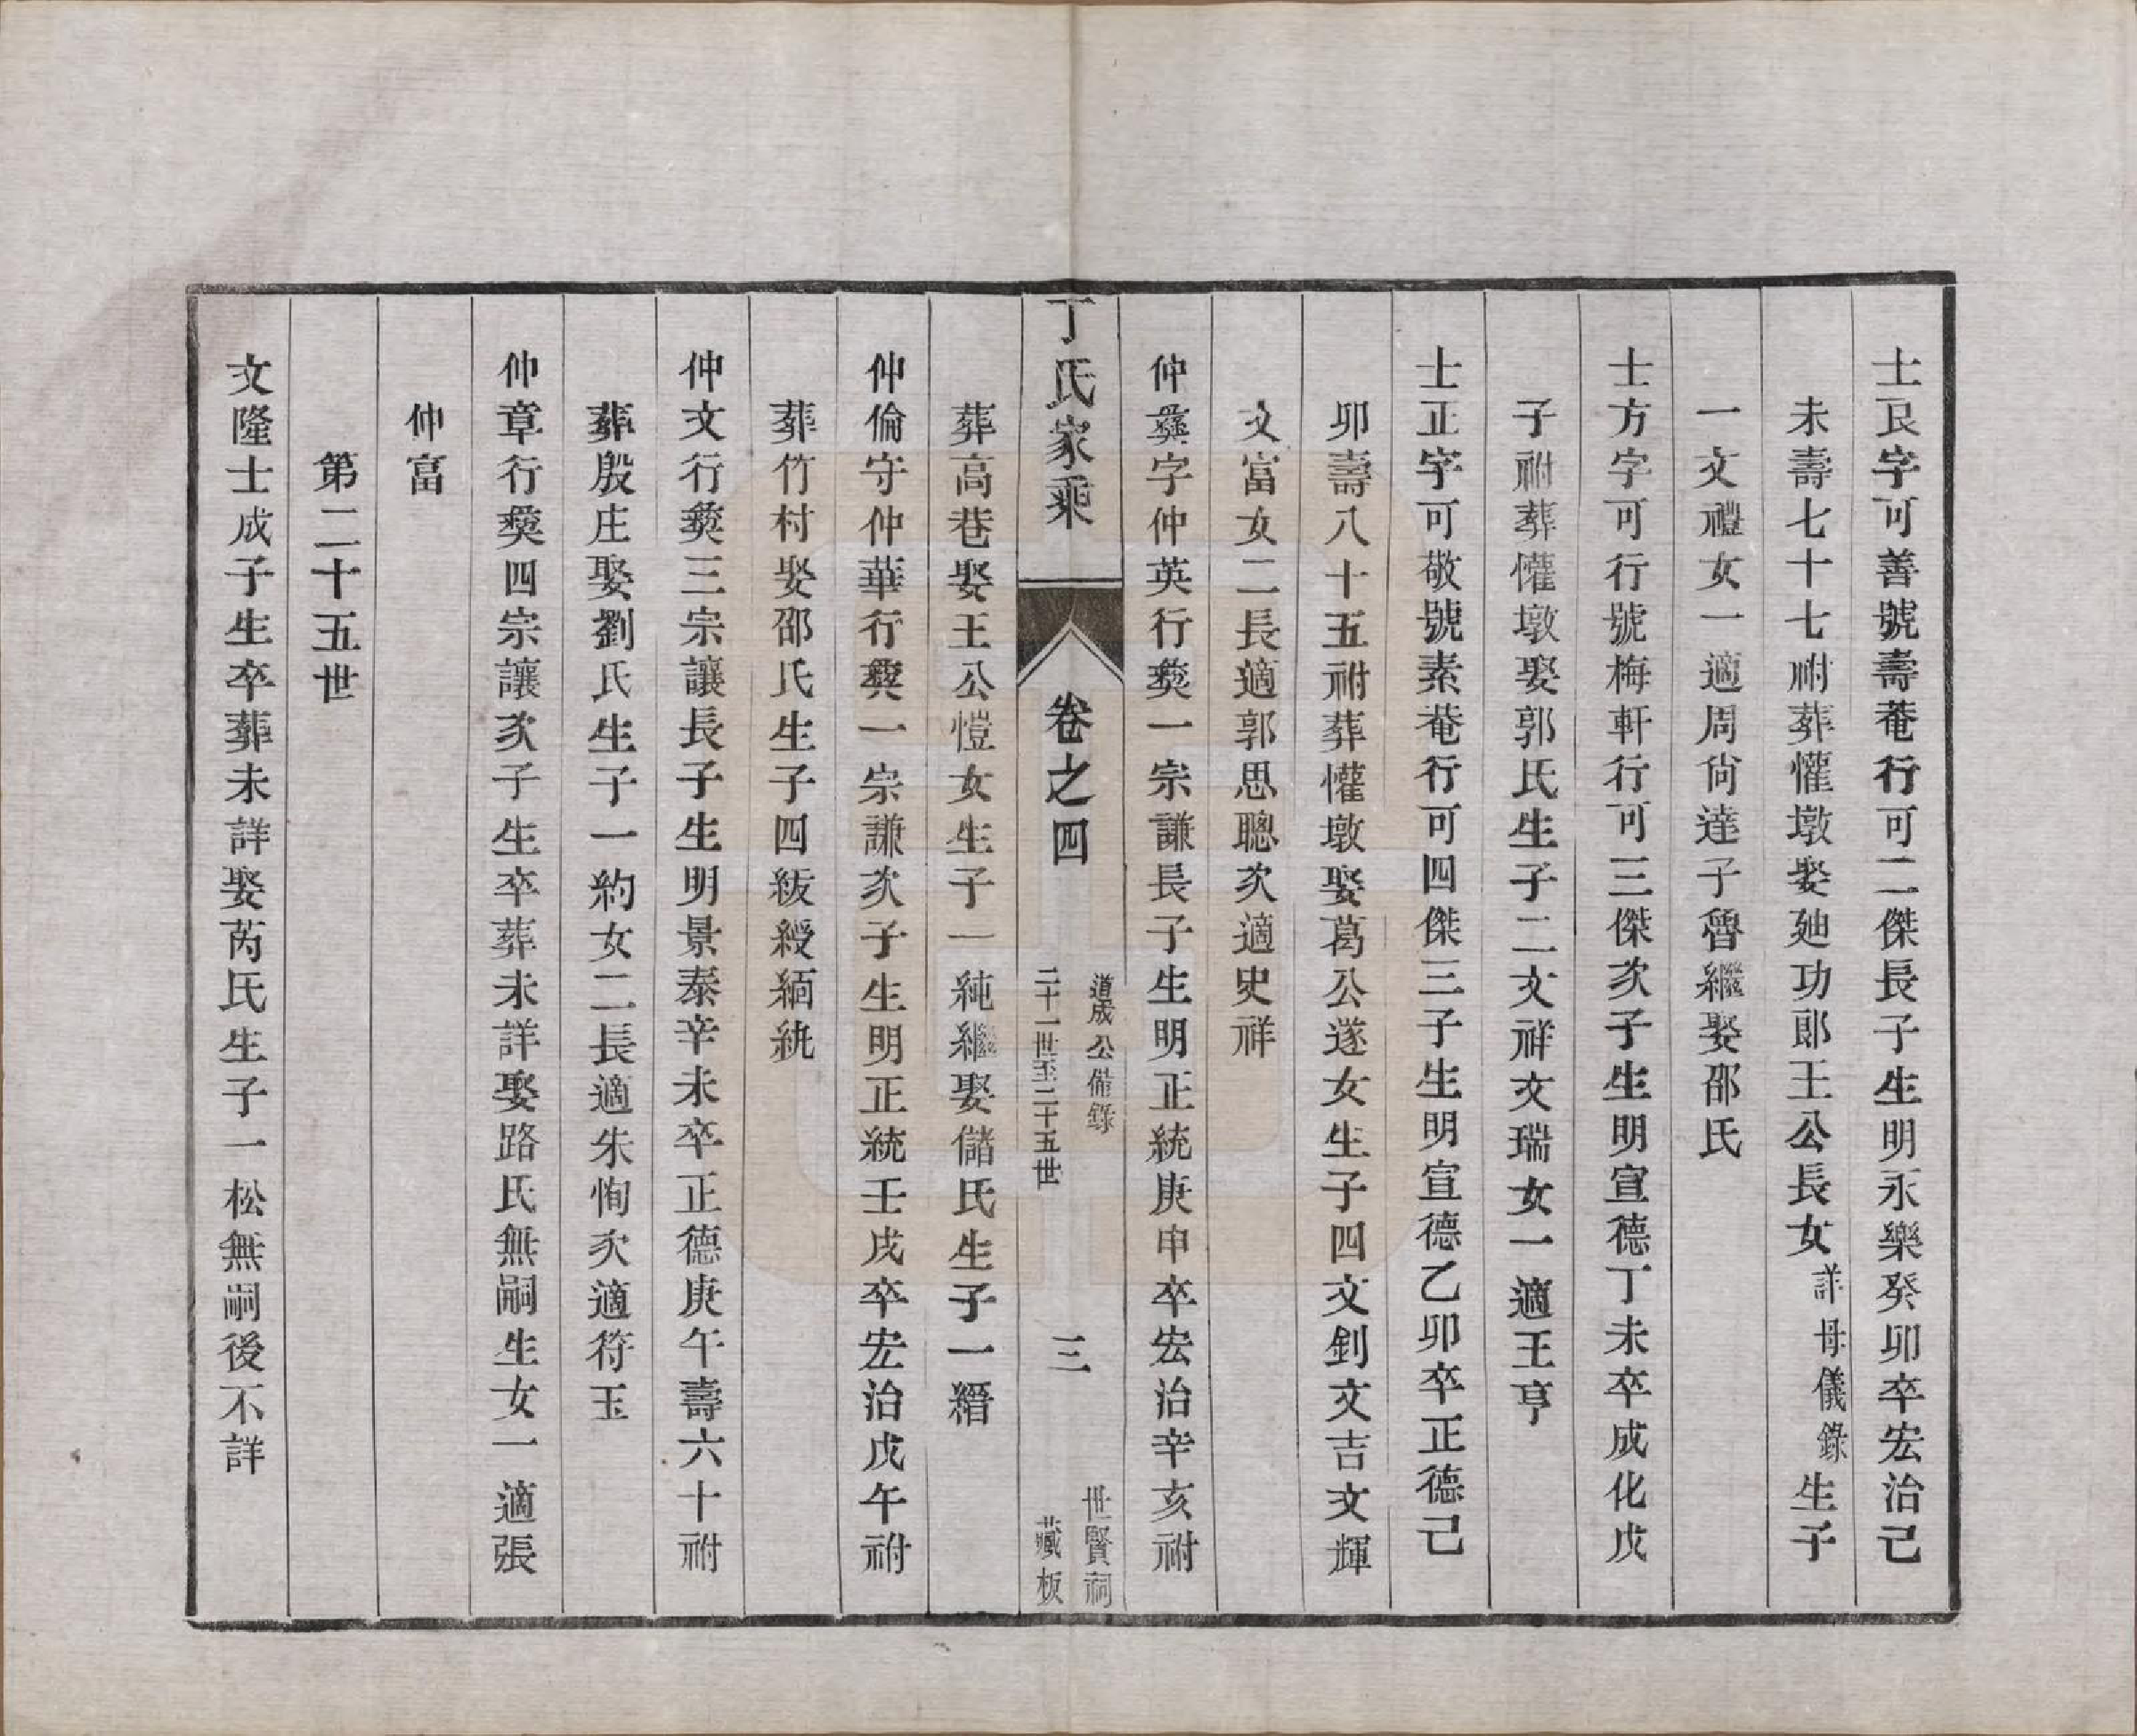 士艮字可善號壽菴行可二傑長子生明永樂癸卯卒宏治己
未壽七十七祔葬懽墩娶廸功郎王公長女詳母儀錄生子
一文禮女一適周尙達子魯繼娶邵氏
士方字可行號梅軒行可三傑次子生明宣德丁未卒成化戊
子祔葬懽墩娶郭氏生子二文祥文瑞女一適王亨
士正字可敬號素菴行可四傑三子生明宣德乙卯卒正德己
卯壽八十五祔葬懽墩娶葛公遂女生子四文釗文吉文輝
文富女二長適郭思聰次適史祥
仲彝字仲英行㷼一宗謙長子生明正統庚申卒宏治辛亥祔
丁氏家乘
卷之四
道成公備錄
二十一世至二十五世
三
世賢祠
藏板
葬高巷娶王公愷女生子一純繼娶儲氏生子一縉
仲倫守仲華行㷼一宗謙次子生明正統壬戌卒宏治戊午祔
葬竹村娶邵氏生子四紱綬緬絖
仲文行㷼三宗讓長子生明景泰辛未卒正德庚午壽六十祔
葬殷庄娶劉氏生子一約女二長適朱恂次適符玉
仲章行㷼四宗讓次子生卒葬未詳娶路氏無嗣生女一適張
仲富
第二十五世
文隆士成子生卒葬未詳娶芮氏生子一松無嗣後不詳